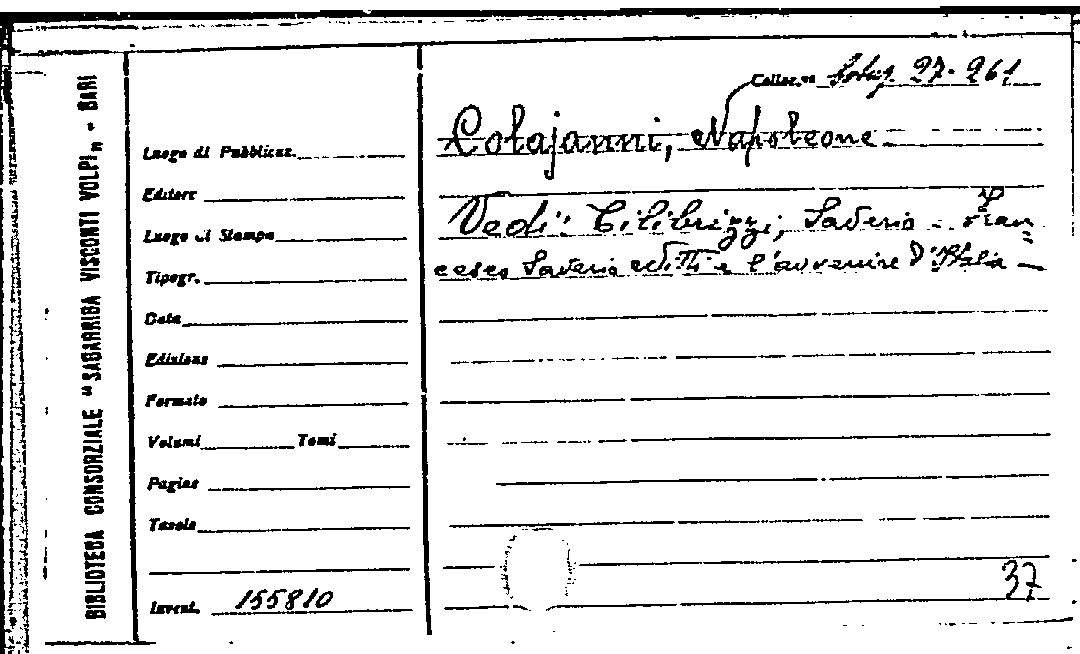 BIBLIOTECA CONSORZIALE "SAGARRIGA VISCONTI VOLPI" - BARI
Colloc.ne 27-261
Colajanni, Napoleone
Luogo di Pubblicaz.
Editore
Vedi: Cilibrizzi, Saverio - Fran=
Luogo di Stampa
cesco Saverio Nitti e l'avvenire d'Italia -
Tipogr.
Data
Edizione
Formato
Volumi Tomi
Pagine
Tavole
Invent. 155810
37